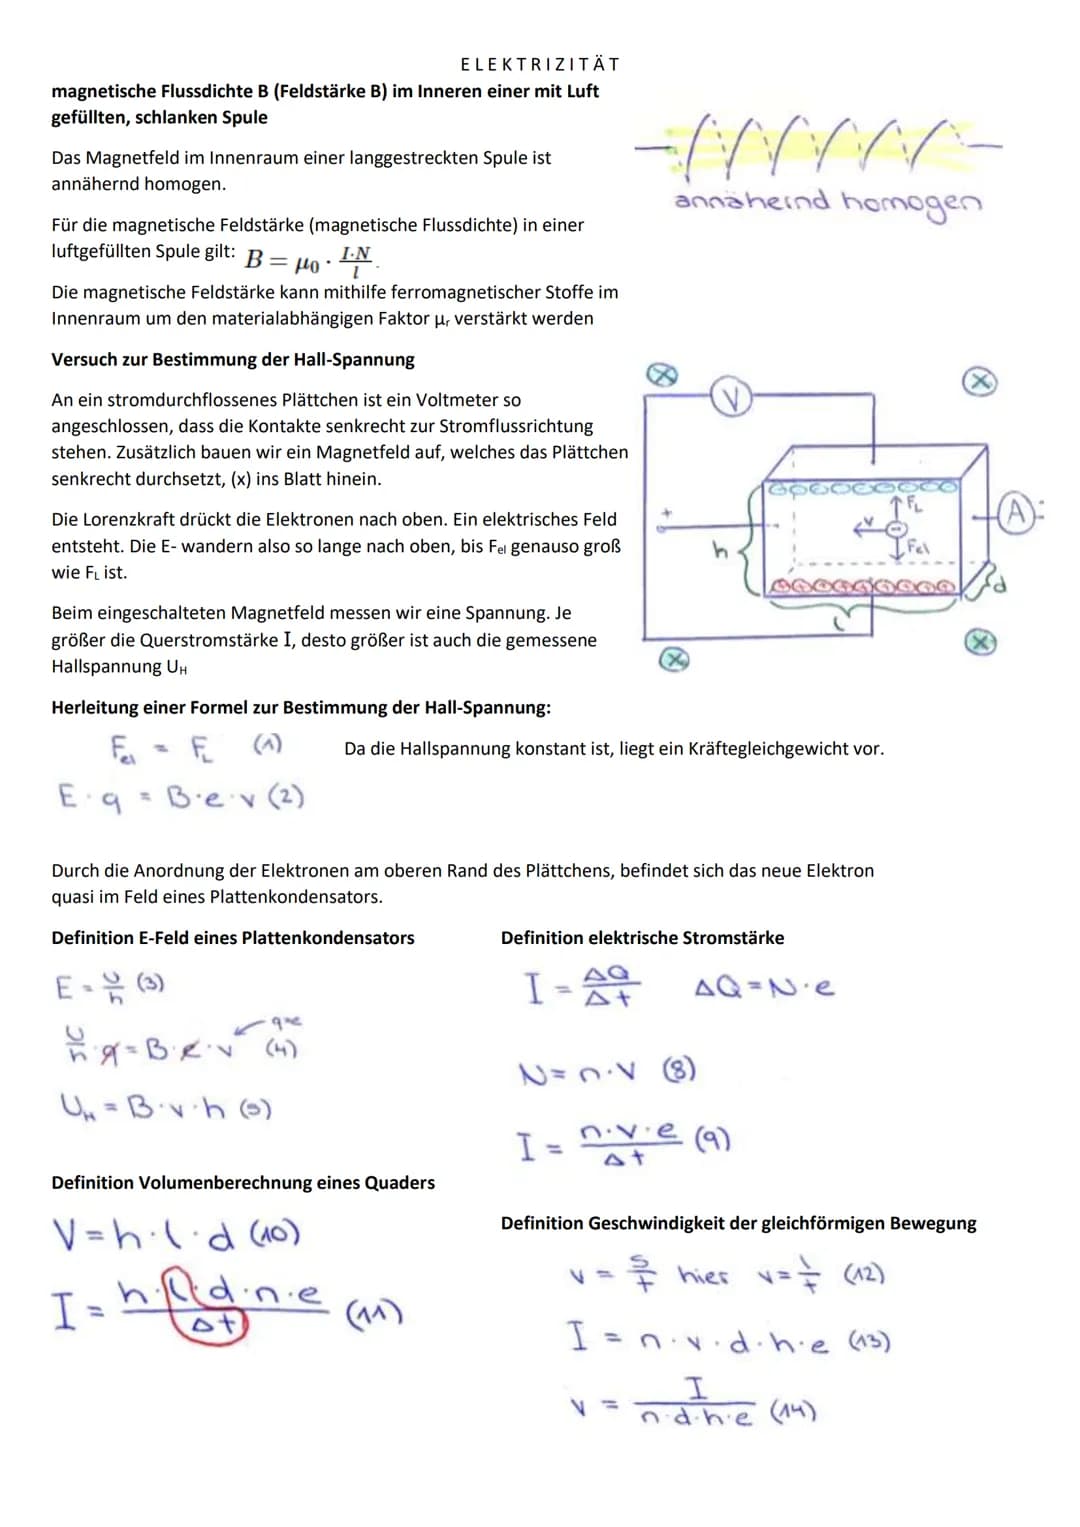 ELEKTRIZITÄT
magnetische Flussdichte B (Feldstärke B) im Inneren einer mit Luft
gefüllten, schlanken Spule
Das Magnetfeld im Innenraum einer langgestreckten Spule ist
annähernd homogen.
annähernd homogen
Für die magnetische Feldstärke (magnetische Flussdichte) in einer
luftgefüllten Spule gilt: B = μ₀ · I·N/l.
Die magnetische Feldstärke kann mithilfe ferromagnetischer Stoffe im
Innenraum um den materialabhängigen Faktor μᵣ verstärkt werden
Versuch zur Bestimmung der Hall-Spannung
An ein stromdurchflossenes Plättchen ist ein Voltmeter so
angeschlossen, dass die Kontakte senkrecht zur Stromflussrichtung
stehen. Zusätzlich bauen wir ein Magnetfeld auf, welches das Plättchen
senkrecht durchsetzt, (x) ins Blatt hinein.
Die Lorenzkraft drückt die Elektronen nach oben. Ein elektrisches Feld
entsteht. Die E- wandern also so lange nach oben, bis Fel genauso groß
wie FL ist.
Beim eingeschalteten Magnetfeld messen wir eine Spannung. Je
größer die Querstromstärke I, desto größer ist auch die gemessene
Hallspannung UH
V
A
+
FL
v
Fel
h
d
l
Herleitung einer Formel zur Bestimmung der Hall-Spannung:
Fel = FL (1)
Da die Hallspannung konstant ist, liegt ein Kräftegleichgewicht vor.
E · q = B · e · v (2)
Durch die Anordnung der Elektronen am oberen Rand des Plättchens, befindet sich das neue Elektron
quasi im Feld eines Plattenkondensators.
Definition E-Feld eines Plattenkondensators
E = U/h (3)
q=e
U/h · q = B · e · v (4)
UH = B · v · h (5)
Definition elektrische Stromstärke
I = ΔQ/Δt ΔQ = N · e
N = n · V (8)
I = n·V·e/Δt (9)
Definition Volumenberechnung eines Quaders
V = h · l · d (10)
I = h·l·d·n·e/Δt (11)
Definition Geschwindigkeit der gleichförmigen Bewegung
v = s/t hier v = l/t (12)
I = n · v · d · h · e (13)
v = I/n·d·h·e (14)